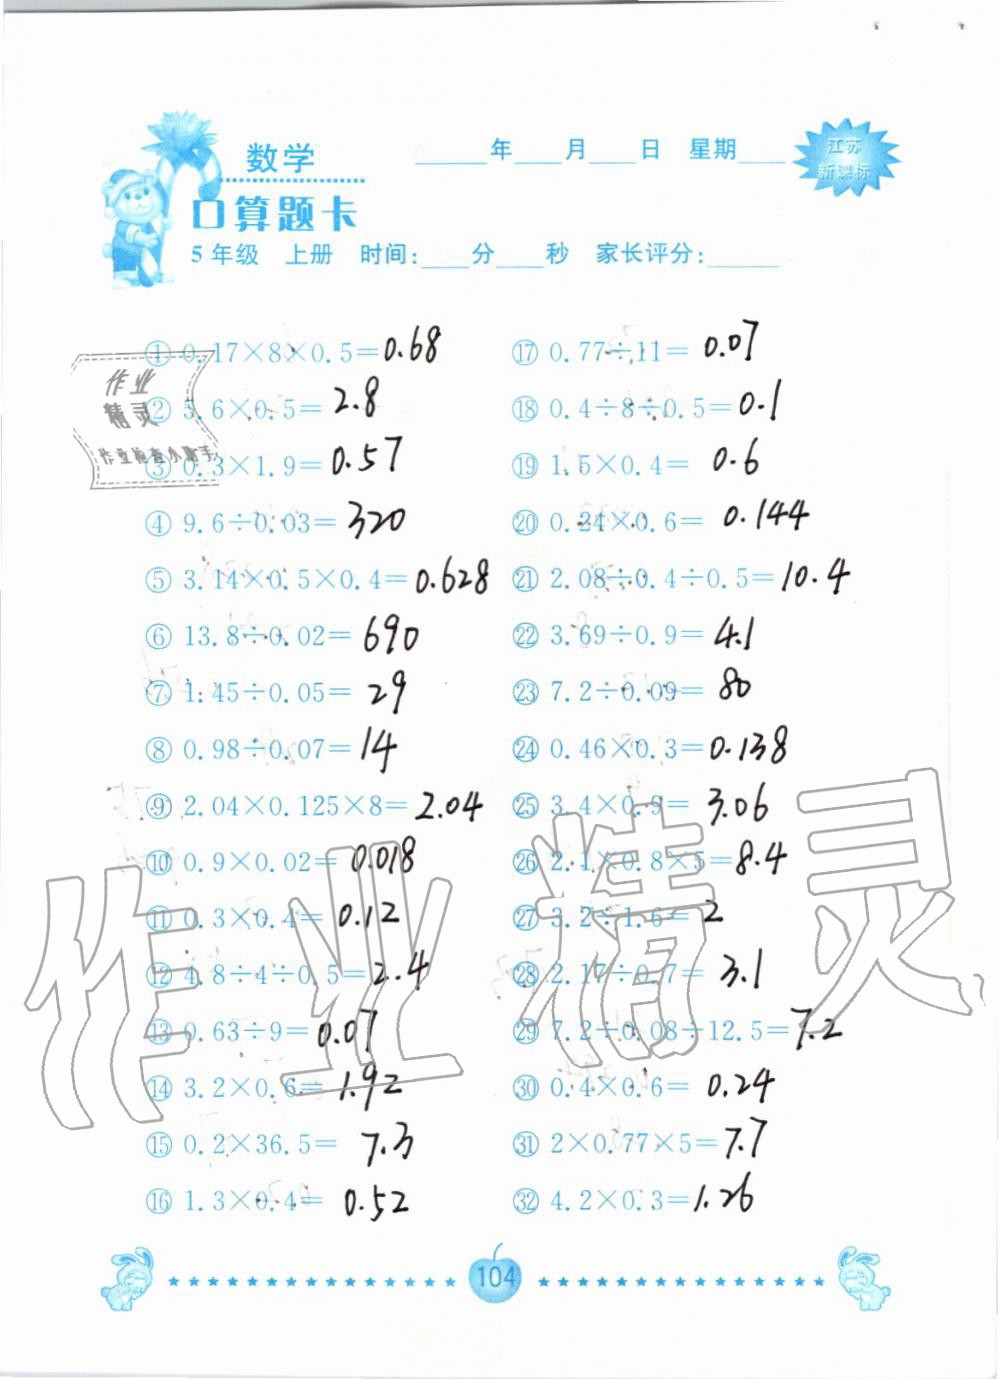 数学
____年____月____日 星期____
江苏
新课标
口算题卡
5年级 上册 时间:____分____秒 家长评分:______
① 0.17×8×0.5=0.68
② 5.6×0.5=2.8
③ 0.3×1.9=0.57
④ 9.6÷0.03=320
⑤ 3.14×0.5×0.4=0.628
⑥ 13.8÷0.02=690
⑦ 1.45÷0.05=29
⑧ 0.98÷0.07=14
⑨ 2.04×0.125×8=2.04
⑩ 0.9×0.02=0.018
⑪ 0.3×0.4=0.12
⑫ 4.8÷4÷0.5=2.4
⑬ 0.63÷9=0.07
⑭ 3.2×0.6=1.92
⑮ 0.2×36.5=7.3
⑯ 1.3×0.4=0.52
⑰ 0.77÷11=0.07
⑱ 0.4÷8÷0.5=0.1
⑲ 1.5×0.4=0.6
⑳ 0.24×0.6=0.144
㉑ 2.08÷0.4÷0.5=10.4
㉒ 3.69÷0.9=4.1
㉓ 7.2÷0.09=80
㉔ 0.46×0.3=0.138
㉕ 3.4×0.9=3.06
㉖ 2.1×0.8×5=8.4
㉗ 3.2÷1.6=2
㉘ 2.17÷0.7=3.1
㉙ 7.2÷0.08÷12.5=7.2
㉚ 0.4×0.6=0.24
㉛ 2×0.77×5=7.7
㉜ 4.2×0.3=1.26
作业
精灵
作业检查小助手
作业精灵
104